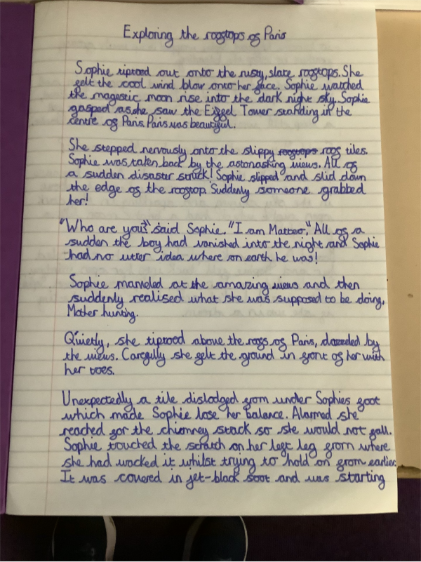 Exploring the rooftops of Paris
Sophie tiptoed out onto the rusy, slate rooftops. She
felt the cool wind blow onto her face. Sophie watched
the magestic moon rise into the dark night sky. Sophie
gasped as she saw the Eiffel Tower standing in the
centre of Paris. Paris was beautiful.
She stepped nervously onto the slippy rooftops roof tiles.
Sophie was taken back by the astonashing views. All of
a sudden disaster struck! Sophie slipped and slid down
the edge of the rooftop. Suddenly someone grabbed
her!
"Who are you?" said Sophie. "I am Matteo." All of a
sudden the boy had vanished into the night and Sophie
had no uter idea where on earth he was!
Sophie marveled at the amazing views and then
suddenly realised what she was supposed to be doing,
Mother hunting.
Quietly, she tiptoed above the roofs of Paris,
by
the views. Carefully she felt the ground in front of her with
her toes.
Unexpectedly a tile dislodged from under Sophies foot
which made Sophie lose her balance. Alarmed she
reached for the chimney stack so she would not fall.
Sophie touched the scratch on her left leg from where
she had wacked it whilst trying to hold on from earlier.
It was covered in jet-black soot and was starting